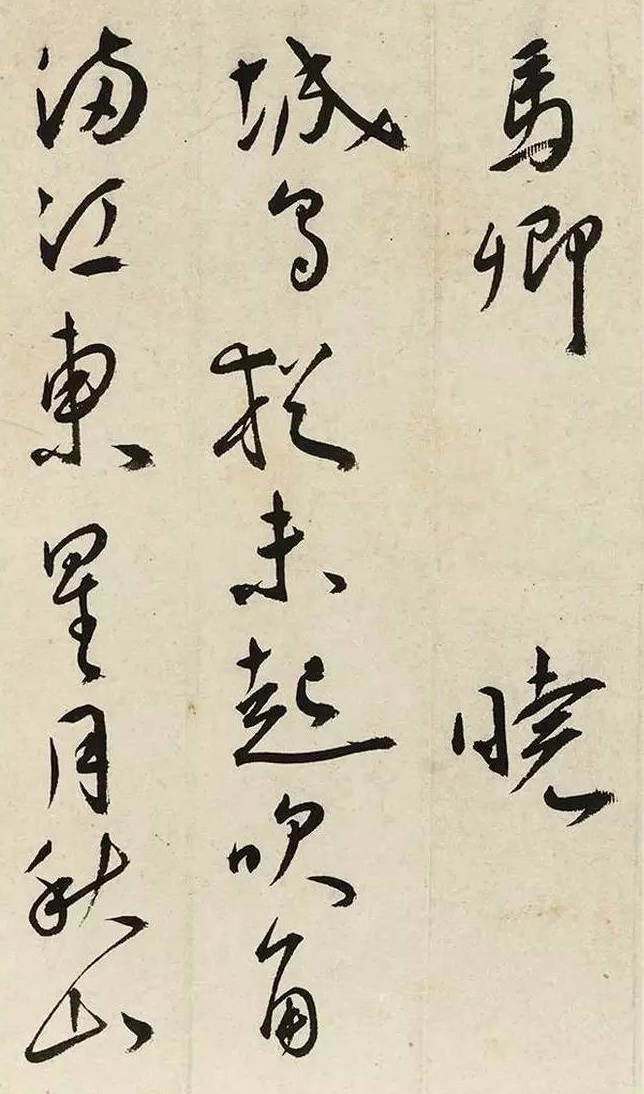 馬卿 曉
城烏棲未起吹角
滿江東星月秋山